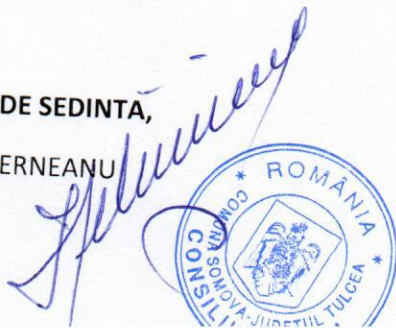 DE SEDINTA,
ERNEANU
* ROMÂNIA *
COMUNA SOMOVA-JUDEŢUL TULCEA
CONSILI